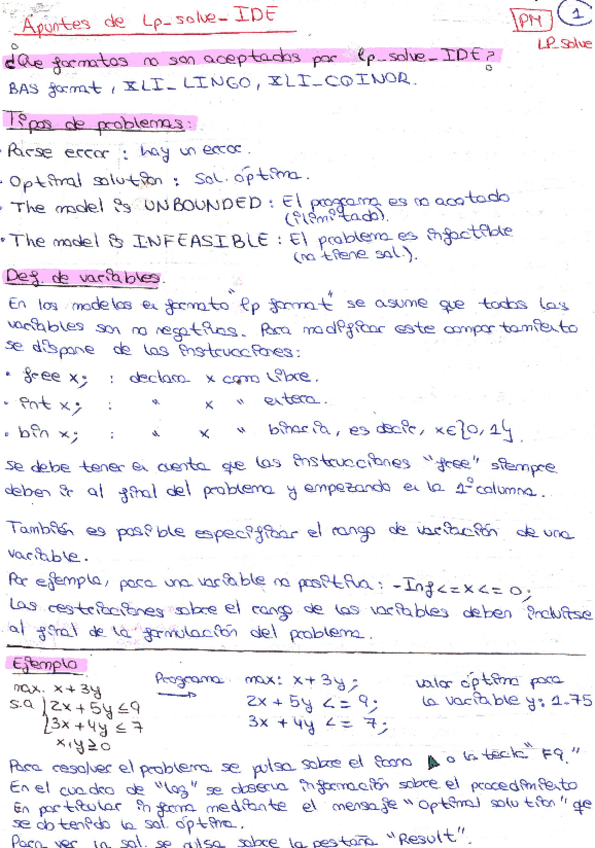 Apuntes de Lp_solve_IDE
PM 1
LP_Solve
¿Qué formatos no son aceptados por lp_solve_IDE?
BAS format, XLI_LINGO, XLI_COINOR.
Tipos de problemas:
· Parse error : hay un error.
· Optimal solution : Sol. óptima.
· The model is UNBOUNDED : El programa es no acotado
(ilimitado).
· The model is INFEASIBLE : El problema es infactible
(no tiene sol.).
Def. de variables.
En los modelos en formato "lp format" se asume que todas las
variables son no negativas. Para modificar este comportamiento
se dispone de las instrucciones:
· free x; : declara x como libre.
· int x; : " x " entera.
· bin x; : " x " binaria, es decir, x∈{0,1}.
Se debe tener en cuenta que las instrucciones "free" siempre
deben ir al final del problema y empezando en la 1º columna.
También es posible especificar el rango de variación de una
variable.
Por ejemplo, para una variable no positiva: -Inf<=x<=0;
Las restricciones sobre el rango de las variables deben incluirse
al final de la formulación del problema.
Ejemplo
max. x+3y
s.a {2x+5y≤9
{3x+4y≤7
x,y≥0
Programa →
max: x+3y;
2x+5y<=9;
3x+4y<=7;
valor óptimo para
la variable y: 1.75
Para resolver el problema se pulsa sobre el icono o la tecla "F9."
En el cuadro de "log" se observa información sobre el procedimiento
En particular informa mediante el mensaje "Optimal solution" que
se ha obtenido la sol. óptima.
Para ver la sol. se pulsa sobre la pestaña "Result".